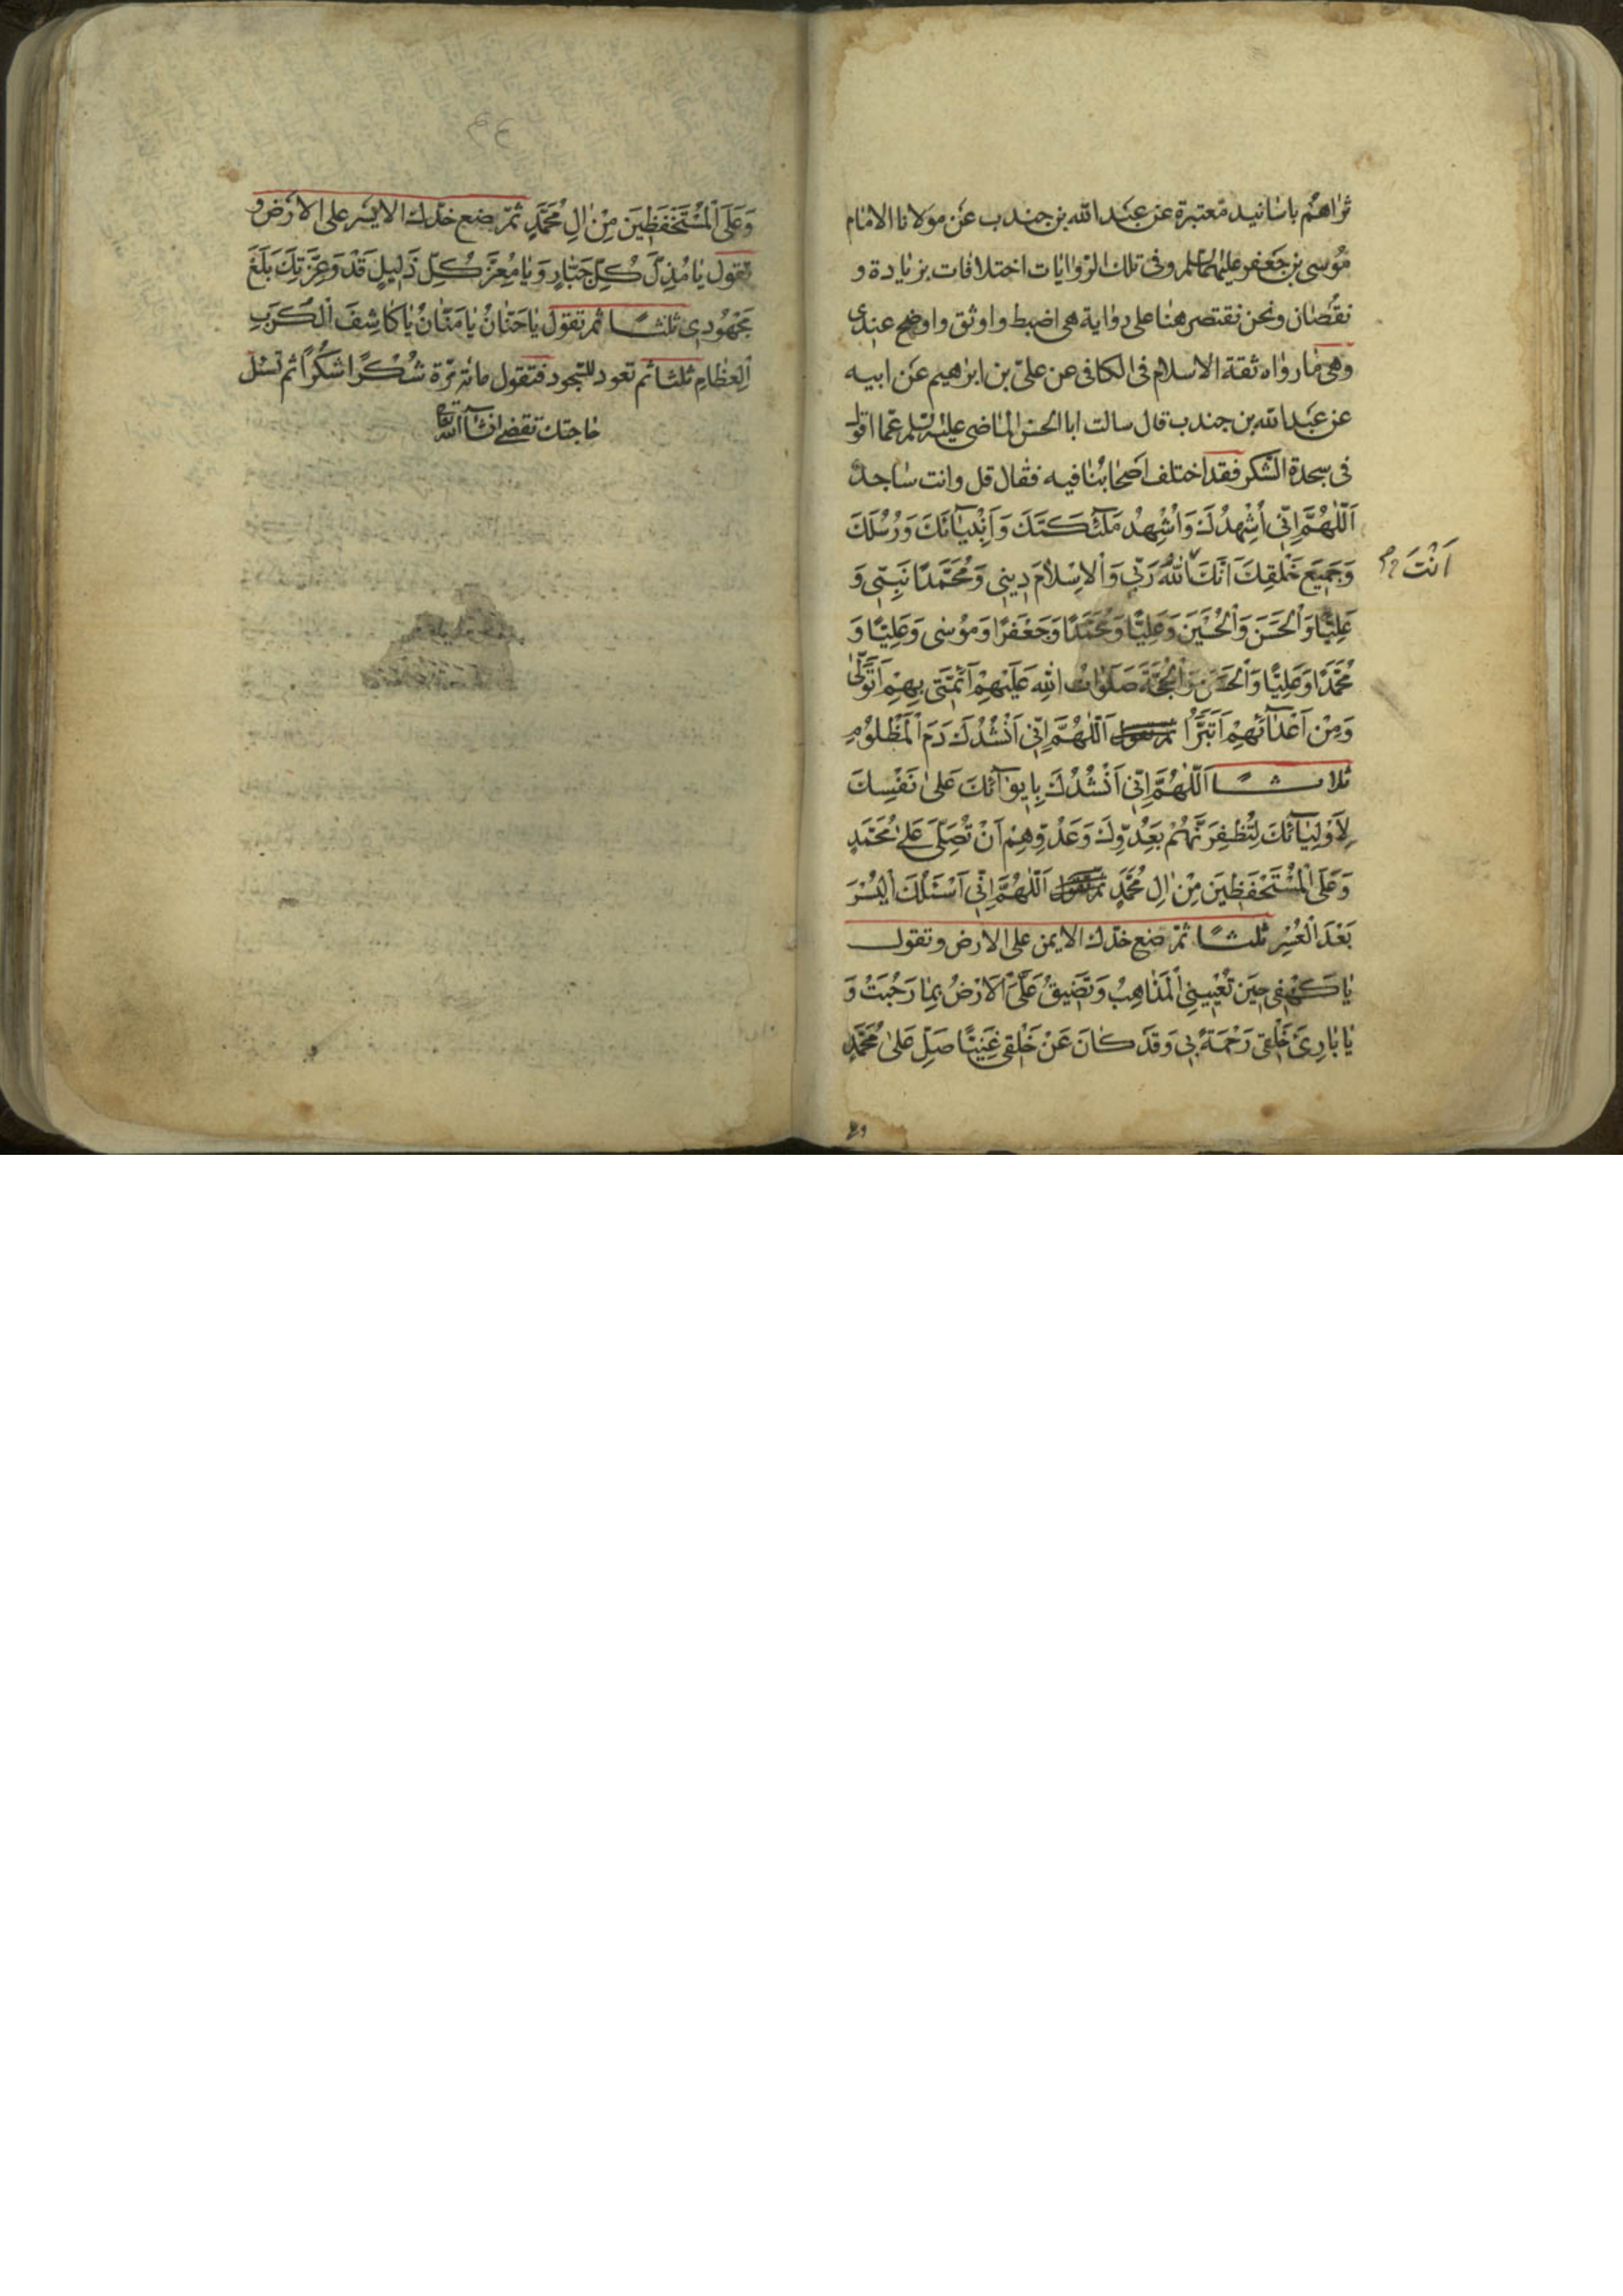 ثراهم باسانيد معتبرة عن عبد الله بن جندب عن مولانا الامام
موسى بن جعفر عليهما السلم وفى تلك الروايات اختلافات بزيادة و
نقصان ونحن نقتصر هنا على رواية هى اضبط واوثق واوضح عندى
وهى ما رواه ثقة الاسلام فى الكافى عن على بن ابرهيم عن ابيه
عن عبد الله بن جندب قال سالت ابا الحسن الماضى عليه السلم عما اقول
فى سجدة الشكر فقد اختلف اصحابنا فيه فقال قل وانت ساجد
اَللّٰهُمَّ اِنّى اُشْهِدُكَ وَاُشْهِدُ مَلٰٓئِكَتَكَ وَاَنْبِيٰٓائَكَ وَرُسُلَكَ
وَجَمِيعَ خَلْقِكَ اَنَّكَ اللّٰهُ رَبّى وَالْاِسْلامَ دِينى وَمُحَمَّدًا نَبِيّى وَ
اَنْتَ
عَلِيًّا وَالْحَسَنَ وَالْحُسَيْنَ وَعَلِيًّا وَمُحَمَّدًا وَجَعْفَرًا وَمُوسٰى وَعَلِيًّا وَ
مُحَمَّدًا وَعَلِيًّا وَالْحَسَنَ وَالْحُجَّةَ صَلَوٰاتُ اللّٰهِ عَلَيْهِمْ اَئِمَّتى بِهِمْ اَتَوَلّٰى
وَمِنْ اَعْدٰٓائِهِمْ اَتَبَرَّأُ ثم تقول اَللّٰهُمَّ اِنّى اَنْشُدُكَ دَمَ الْمَظْلُومِ
ثلاثًا اَللّٰهُمَّ اِنّى اَنْشُدُكَ بِاِيوٰٓائِكَ عَلىٰ نَفْسِكَ
لِاَوْلِيٰٓائِكَ لَتُظْفِرَنَّهُمْ بِعَدُوِّكَ وَعَدُوِّهِمْ اَنْ تُصَلِّىَ عَلىٰ مُحَمَّدٍ
وَعَلَى الْمُسْتَحْفَظِينَ مِنْ اٰلِ مُحَمَّدٍ ثم تقول اَللّٰهُمَّ اِنّى اَسْئَلُكَ الْيُسْرَ
بَعْدَ الْعُسْرِ ثلثًا ثمّ ضع خدّك الايمن على الارض وتقول
يٰا كَهْفى حِينَ تُعْيِينِى الْمَذٰاهِبُ وَتَضِيقُ عَلَىَّ الْاَرْضُ بِمٰا رَحُبَتْ وَ
يٰا بٰارِئَ خَلْقى رَحْمَةً بى وَقَدْ كٰانَ عَنْ خَلْقى غَنِيًّا صَلِّ عَلىٰ مُحَمَّدٍ
وَعَلَى الْمُسْتَحْفَظِينَ مِنْ اٰلِ مُحَمَّدٍ ثمّ ضع خدّك الايسر على الارض و
تقول يٰا مُذِلَّ كُلِّ جَبّٰارٍ وَيٰا مُعِزَّ كُلِّ ذَلِيلٍ قَدْ وَعِزَّتِكَ بَلَغَ
مَجْهُودى ثلثًا ثم تقول يٰا حَنّٰانُ يٰا مَنّٰانُ يٰا كٰاشِفَ الْكُرَبِ
الْعِظٰامِ ثلثا ثم تعود للسجود فتقول مائة مرّة شُكْرًا شُكْرًا ثم تسئل
حاجتك تقضى انشآء الله تعالى